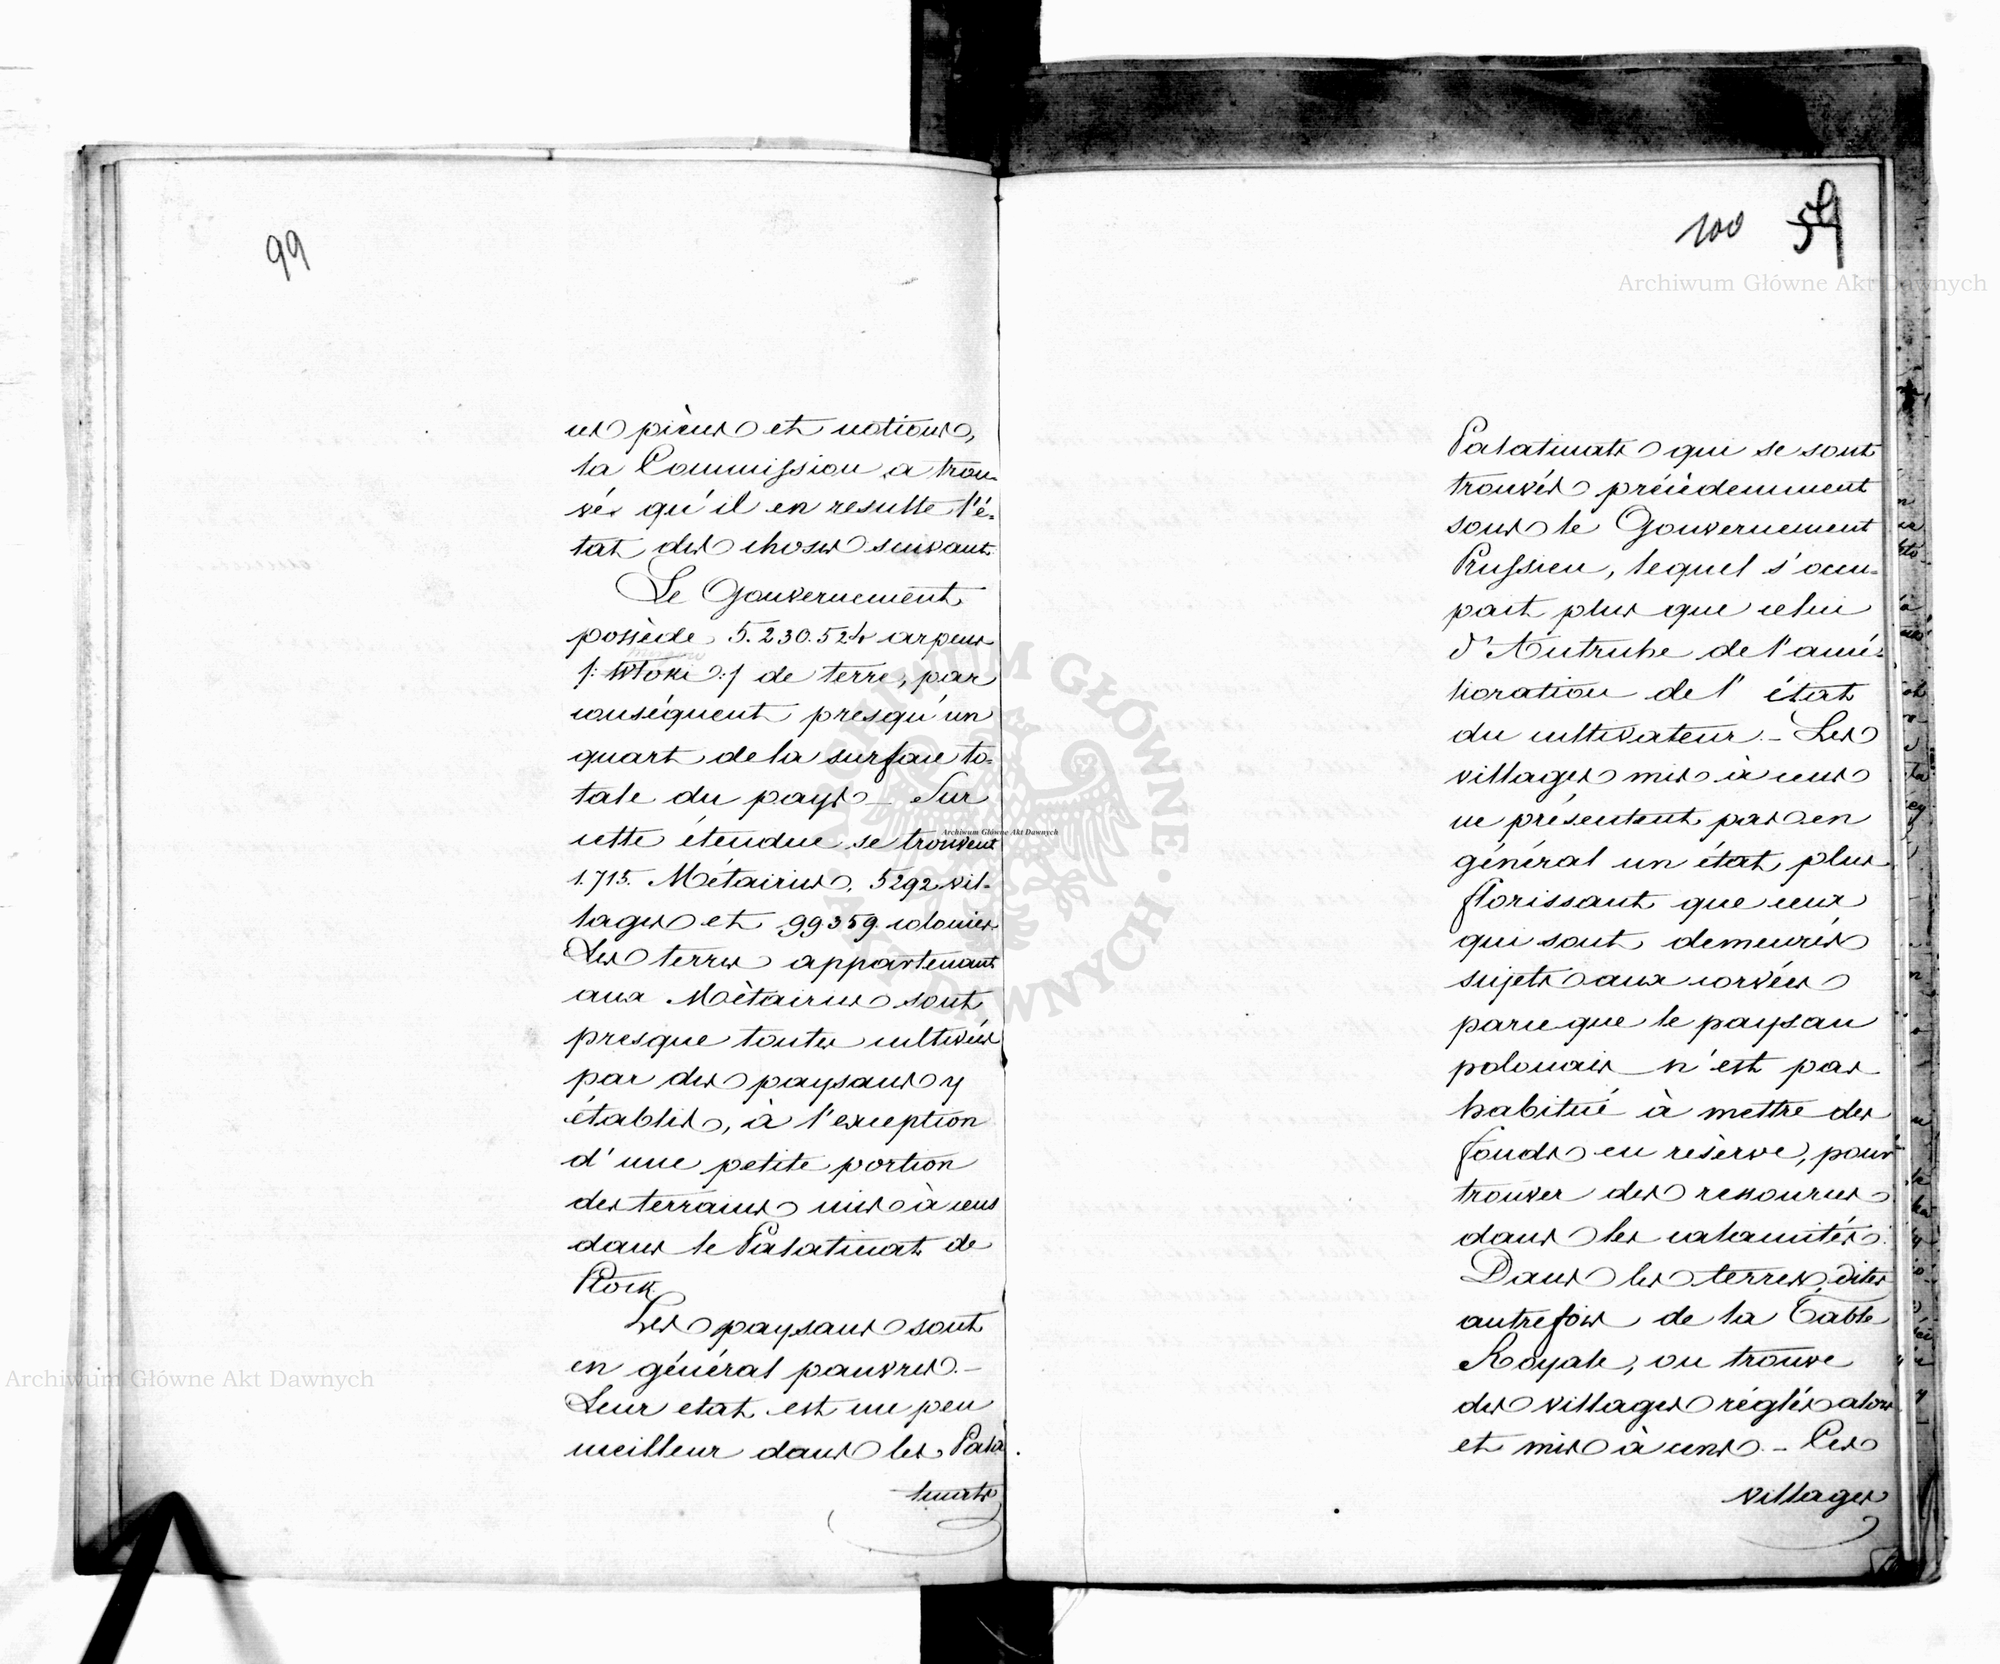 99
ces pièces et notions,
la Commission a trou-
vée qu'il en resulte l'é-
tat des choses suivant.
Le Gouvernement
possède 5.230.524 arpens
morgow
/: Włoki :/ de terre, par
conséquent presqu'un
quart de la surface to-
tale du pays – Sur
cette étendue se trouvent
1.715. Métairies, 5292 vil-
lages et 99.359. colonies.
Les terres appartenant
aux Mètairies sont
presque toutes cultivées
par des paysans y
établis, à l'exception
d'une petite portion
des terrains mis à cens
dans le Palatinat de
Płock.
Les paysans sont
en général pauvres. –
Leur etat est un peu
meilleur dans les Pala
tinats
100 59
Palatinats qui se sont
trouvés précédemment
sous le Gouvernement
Prussien, lequel s'occu-
pait plus que celui
d'Autriche de l'amé-
lioration de l' état
du cultivateur. – Les
villages mis à cens
ne présentent pas en
général un état plus
florissant que ceux
qui sont demeurés
sujets aux corvées
parceque le paysan
polonais n'est pas
habitué à mettre des
fonds en rèserve, pour
trouver des ressources
dans les calamités.
Dans les terres dites
autrefois de la Table
Royale, on trouve
des villages réglés alors
et mis à cens. – Ces
villages
Archiwum Główne Akt Dawnych
Archiwum Główne Akt Dawnych
Archiwum Główne Akt Dawnych
ARCHIWUM GŁÓWNE · AKT DAWNYCH ·